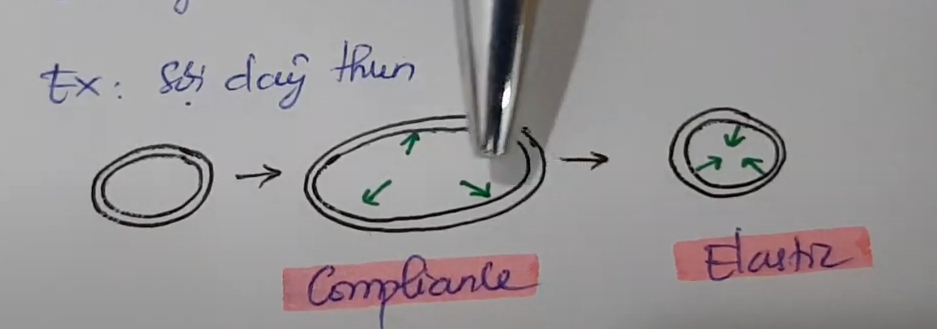 Ex: sợi dây thun
Compliance
Elastic